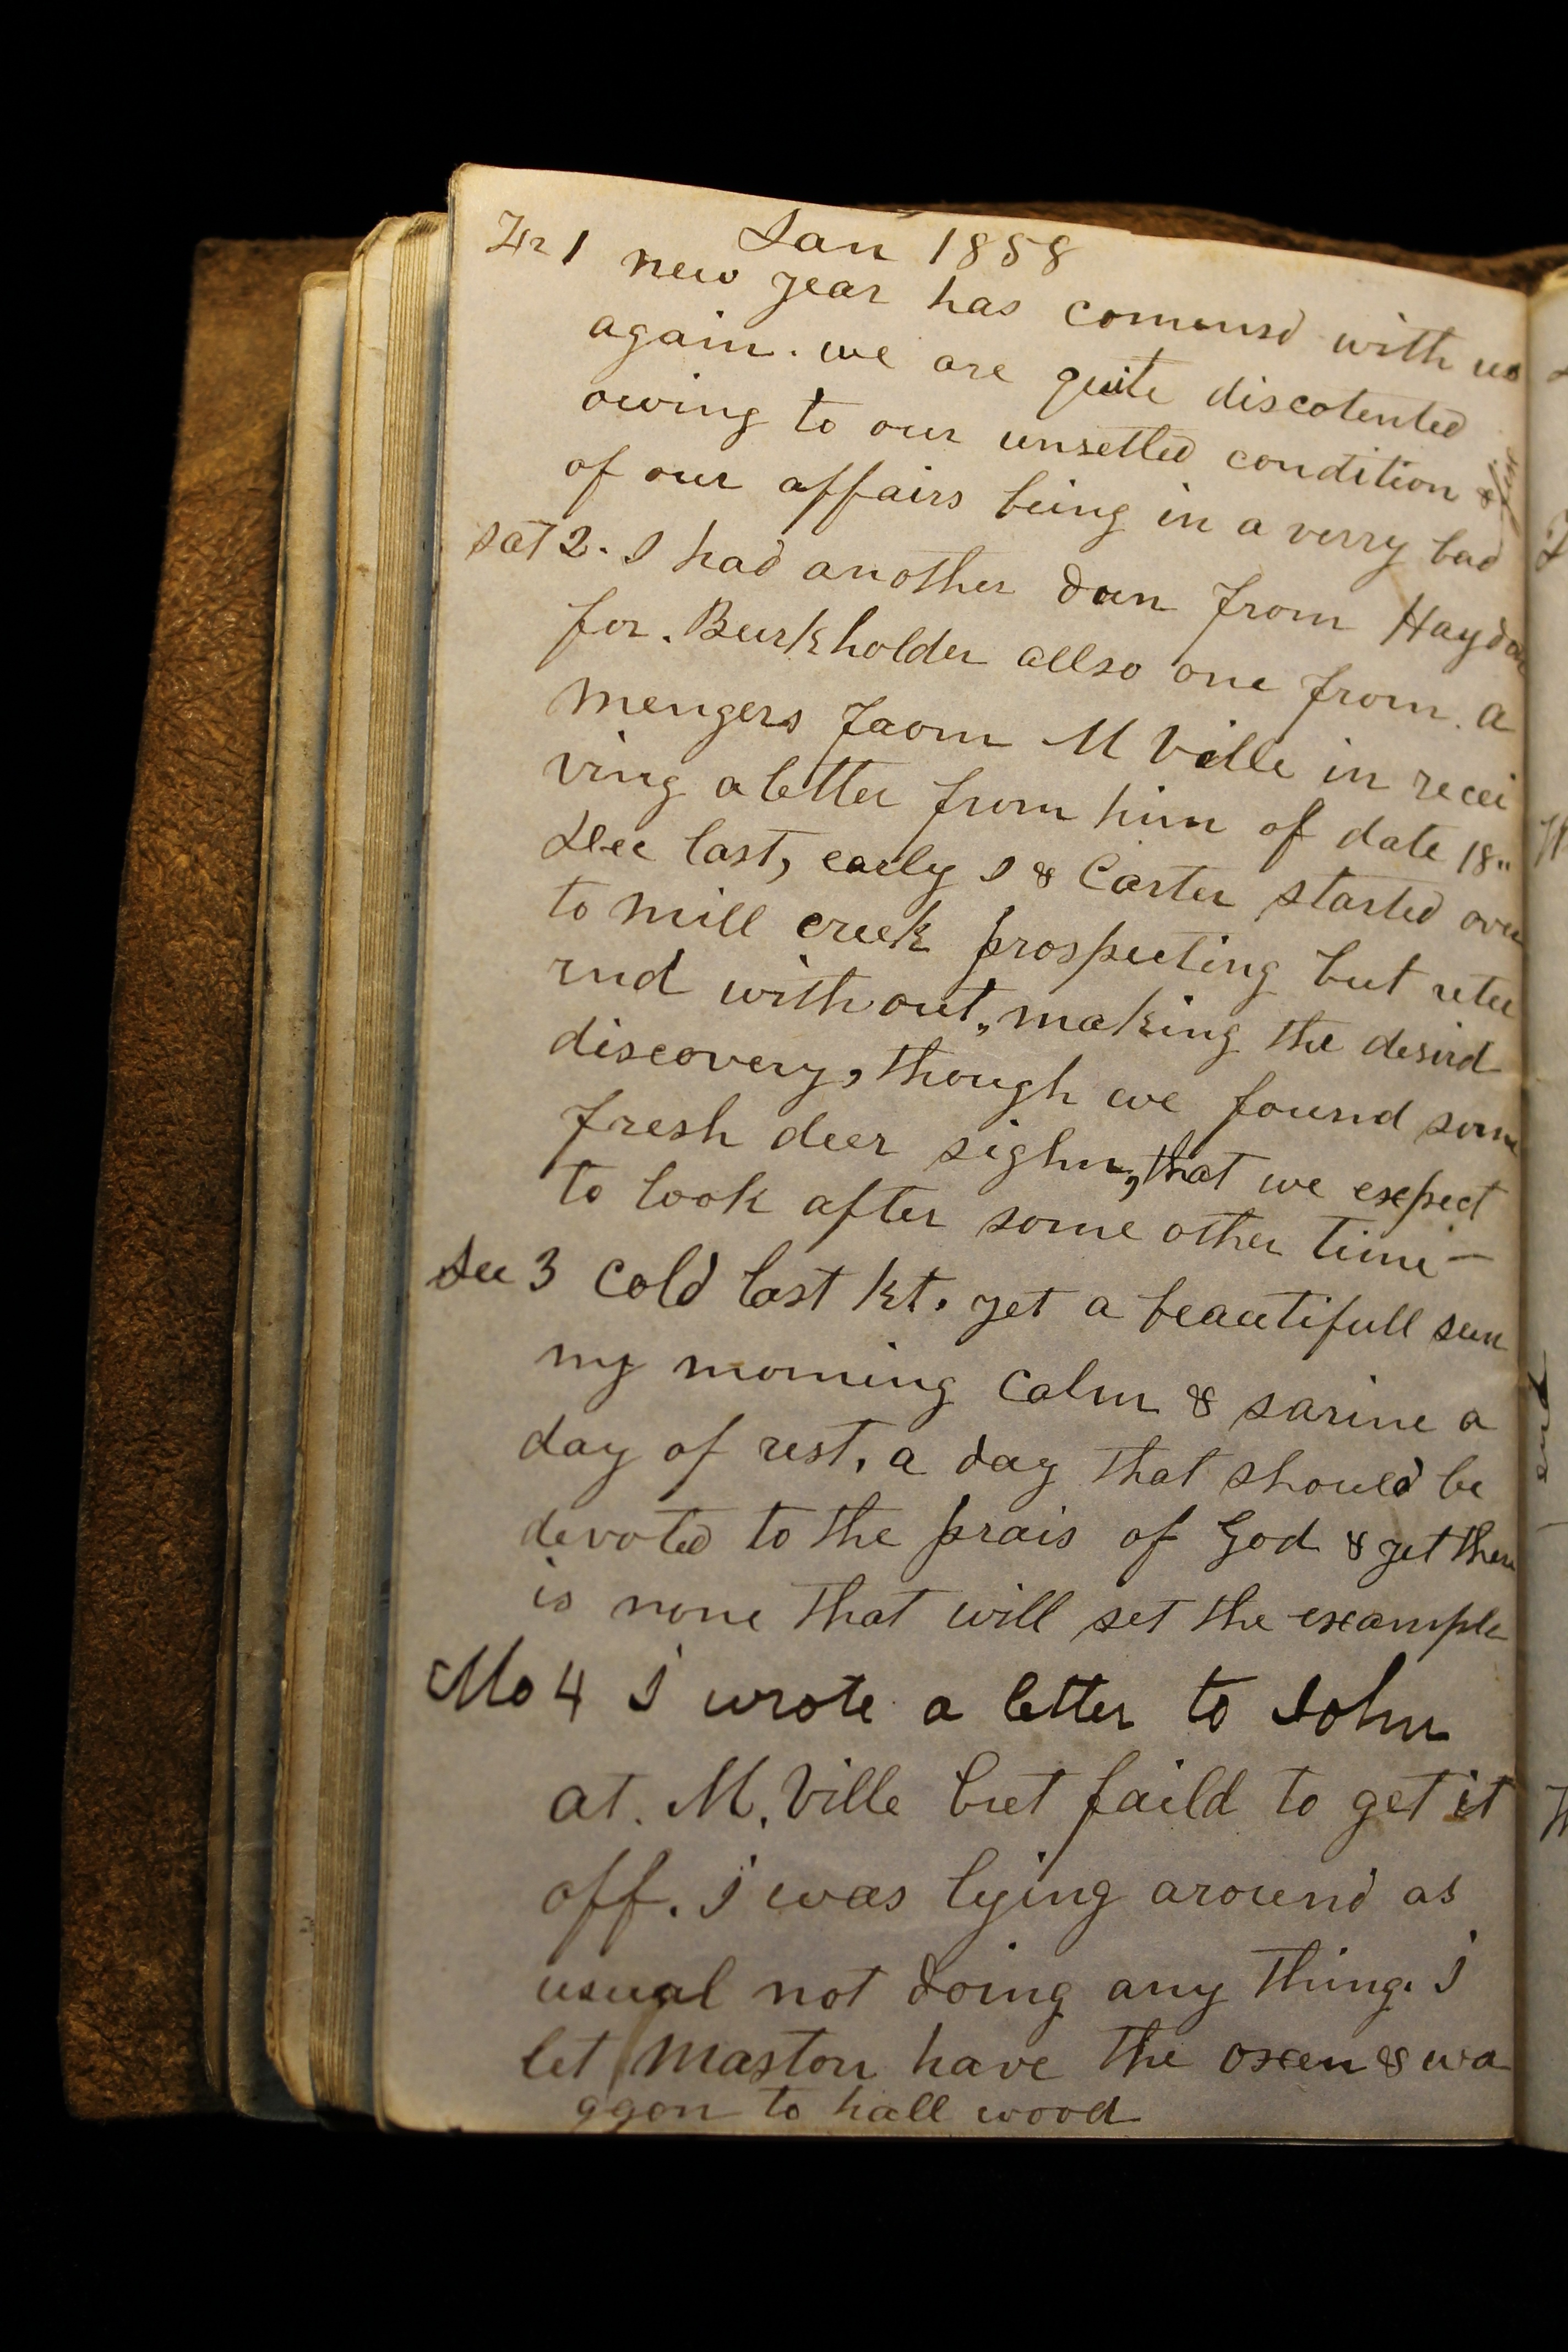 Jan 1858
Fr 1 new year has comensd with us
again. we are quite discotented
owing to our unsetled condition &
of our affairs being in a verry bad fix
Sat 2. I had another dun from Haydon
for. Burkholder allso one from. A
Mengers from M Ville in recei
ving a letter from him of date 18"
Dec last, early I & Carter started over
to mill creek prospecting but retu
rnd without, making the desird
discovery, though we found some
fresh deer sighn, that we expect
to look after some other time —
Su 3 Cold last kt. yet a beautifull sun
ny morning Calm & sarine a
day of rest. a day that should be
devoted to the prais of God & yet there
is none that will set the example
Mo 4 I wrote a letter to John
at. M. Ville but faild to get it
off. I was lying around as
usual not doing any thing. I
let Maston have the oxen & wa
ggon to hall wood